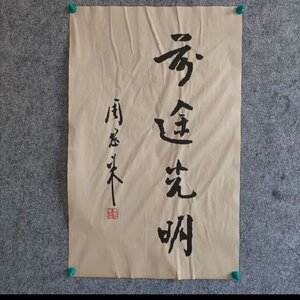 前途光明
周恩来